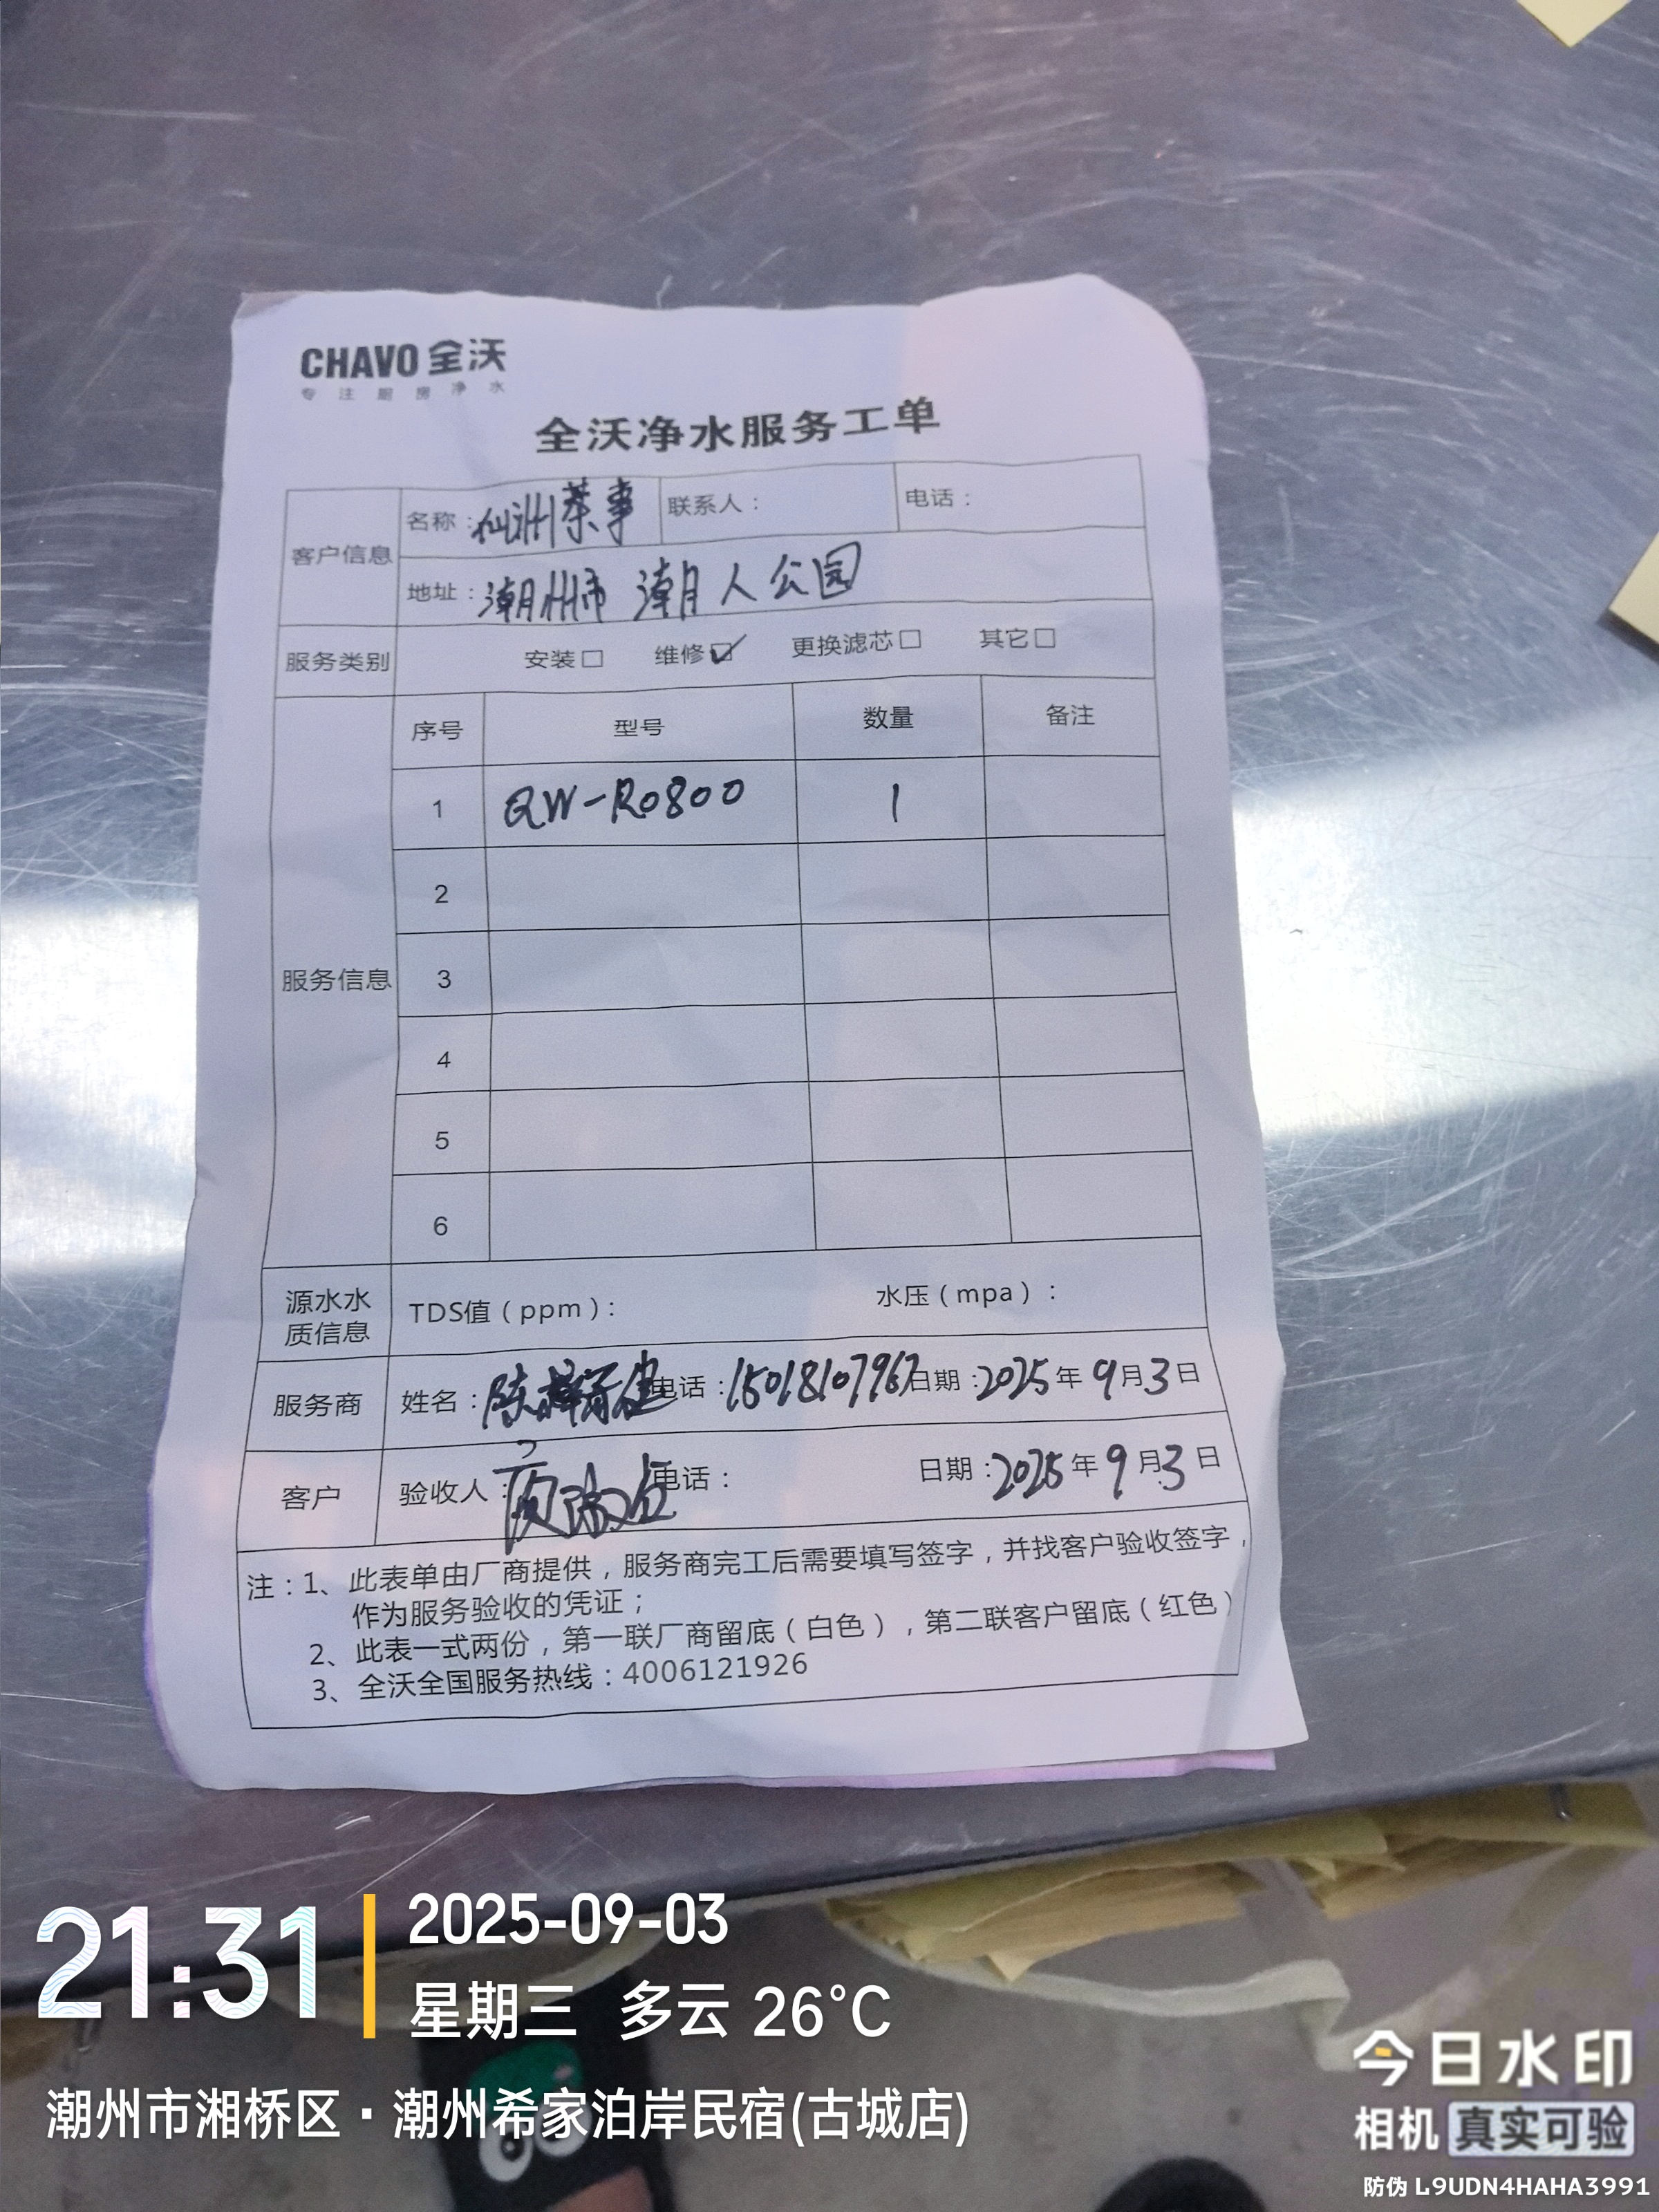 CHAVO 全沃
专注厨房净水
全沃净水服务工单
客户信息 名称：仙洲茶事 联系人： 电话：
地址：潮州市 潮人公园
服务类别 安装□ 维修☑ 更换滤芯□ 其它□
服务信息 序号 型号 数量 备注
1 QW-RO800 1
2
3
4
5
6
源水水质信息 TDS值（ppm）： 水压（mpa）：
服务商 姓名：陈 电话：15018107967 日期：2025年9月3日
客户 验收人： 电话： 日期：2025年9月3日
注：1、此表单由厂商提供，服务商完工后需要填写签字，并找客户验收签字，
作为服务验收的凭证；
2、此表一式两份，第一联厂商留底（白色），第二联客户留底（红色）
3、全沃全国服务热线：4006121926
21:31
2025-09-03
星期三 多云 26°C
潮州市湘桥区·潮州希家泊岸民宿(古城店)
今日水印
相机 真实可验
防伪 L9UDN4HAHA3991